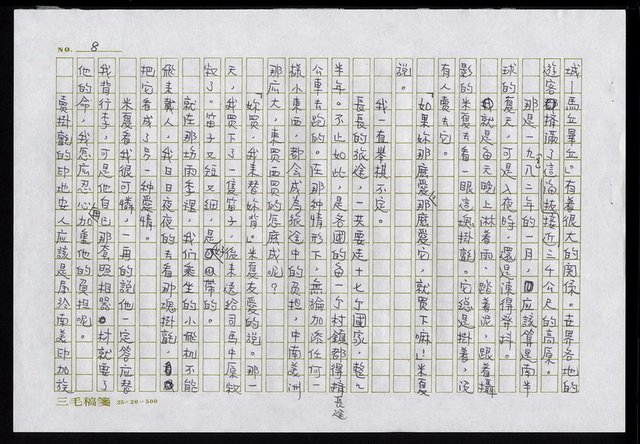 NO. 8
城－馬丘畢丘。有着很大的關係。世界各地的
遊客擠滿了這海拔接近三千公尺的高原。
那是一九八二年的一月，應該算是南半
球的夏天，可是入夜時，還是凍得發抖。
就是每天晚上淋着雨、踏着泥，跟着攝
影的米夏去看一眼這塊掛氈。它總是掛着，沒
有人要去它。
「如果妳那麼愛它，就買下嘛！」米夏
說。
我一直舉棋不定。
長長的旅途，一共要走十七個國家，整整
半年。不止如此，是各國的每一個村鎮都得擠長途
公車去跑的。在那種情形下，無論加添任何一
樣小東西，都會成為旅途中的負擔，中南美洲
那麼大，東買西買的怎麼成呢？
「妳買，我來替妳背。」米夏友愛的說。那一
天，我買下了一隻笛子，後來送給司馬中原叔
叔了。笛子又短又細，是好帶的。
就在那場雨季裡，我們乘的小飛機不能
飛來載人，我日日夜夜的去看那塊掛氈，
把它看成了另一種愛情。
米夏看我很可憐，一再的說他一定答應替
我背行李，可是他自己那套照相器材就要了
他的命，我怎麼忍心加重他的負擔呢。
賣掛氈的印地安人應該是屬於南美印加族
三毛稿箋 25×20=500